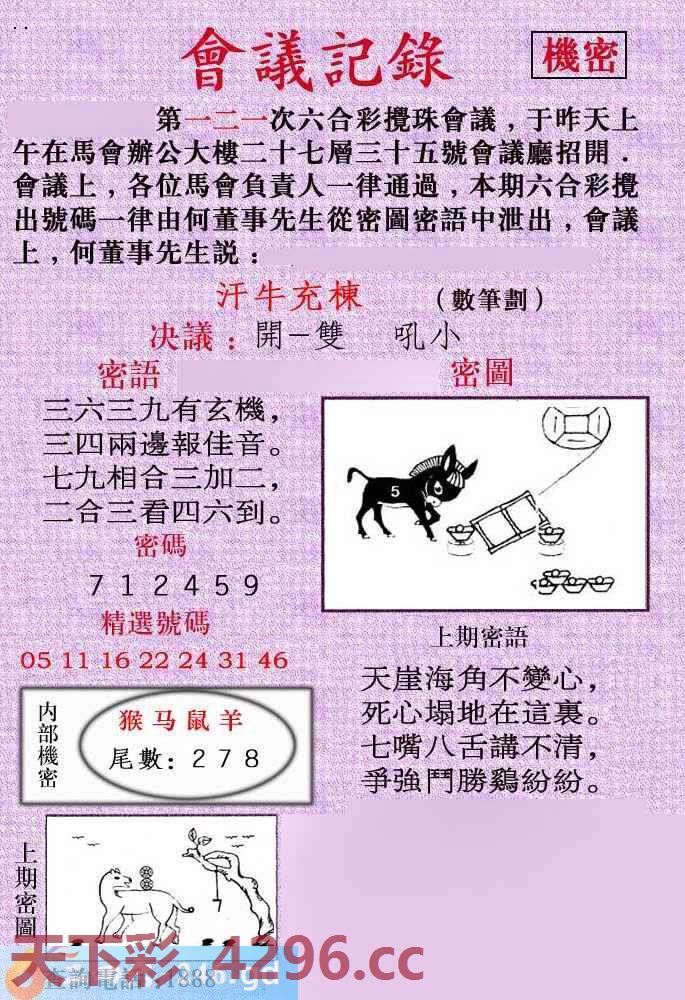 會議記錄
機密
第一二一次六合彩攪珠會議，于昨天上
午在馬會辦公大樓二十七層三十五號會議廳招開．
會議上，各位馬會負責人一律通過，本期六合彩攪
出號碼一律由何董事先生從密圖密語中泄出，會議
上，何董事先生説：
汗牛充棟 （數筆劃）
决議：開－雙 吼小
密語
三六三九有玄機，
三四兩邊報佳音。
七九相合三加二，
二合三看四六到。
密碼
7 1 2 4 5 9
精選號碼
05 11 16 22 24 31 46
密圖
5
上期密語
天崖海角不變心，
死心塌地在這裏。
七嘴八舌講不清，
爭強鬥勝鷄紛紛。
内部機密
猴马鼠羊
尾數：2 7 8
上期密圖
7
天下彩 4296.cc
查詢電話:1388